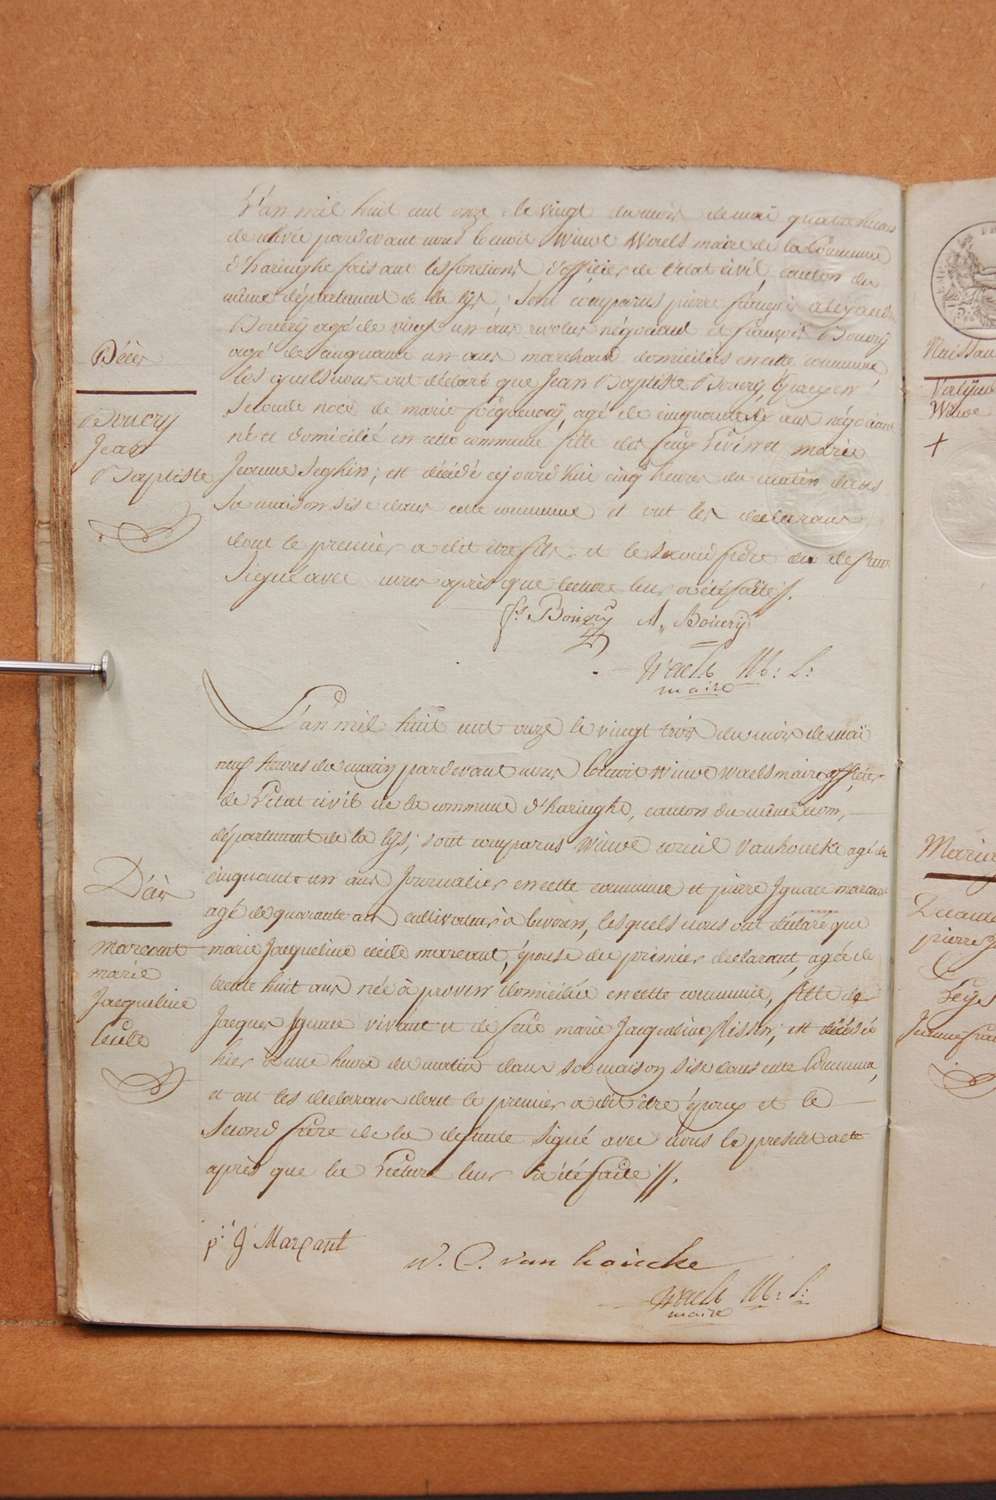 L'an mil huit cent onze le vingt du mois de mai quatre heures
de relevée pardevant nous benoit Winoc Waels maire de la Commune
d'haringhe faisant les fonctions d'officier de l'etat civil canton du
même département de la lys; sont comparus pierre
Bouery agé de vingt un ans revolus négociant et françois Bouery
agé de cinquante un ans marchand domiciliés en cette commune
les quels nous ont déclaré que Jean Baptiste Bouery époux en
seconde noce de marie agé de cinquante ans négociant
né et domicilié en cette commune fils des feux Livin et marie
Jeanne Seghin; est décédé cejourd'hui cinq heures du matin dans
sa maison sise dans cette commune et ont les déclarans
dont le premier a dit être fils et le second frère du defunt
signé avec nous après que lecture leur a été faite //.
fs. Bouery A. Bouery
Waels M: S:
maire
Décès
Bouery
Jean
Baptiste
L'an mil huit cent onze le vingt trois du mois de maï
neuf heures du matin pardevant nous benoit Winoc Waels maire officier
de l'etat civil de la commune d'haringhe, canton du même nom,
département de la lys; sont comparus Winoc Corneil Vanhoucke agé de
cinquante un ans Journalier en cette commune et pierre Ignace marcant
agé de quarante ans cultivateur à proven, lesquels nous ont déclaré que
marie Jacqueline cecile marcant, épouse du premier declarant, agée de
trente huit ans née à proven domiciliée en cette commune, fille de
Jacques Ignace vivant et de feüe marie Jacqueline Risson; est décédée
hier à une heure du matin dans sa maison sise dans cette Commune,
et ont les déclarans dont le premier a dit être époux et le
second frère de la defunte signé avec nous le présent acte
après que la lecture leur a été faite //.
p: J Marcant
W. C. van houcke
Waels M: S:
maire
Décès
marcant
marie
Jacqueline
Cecile
Naissan
Winoc
+
Mariag
pierre J
Leys